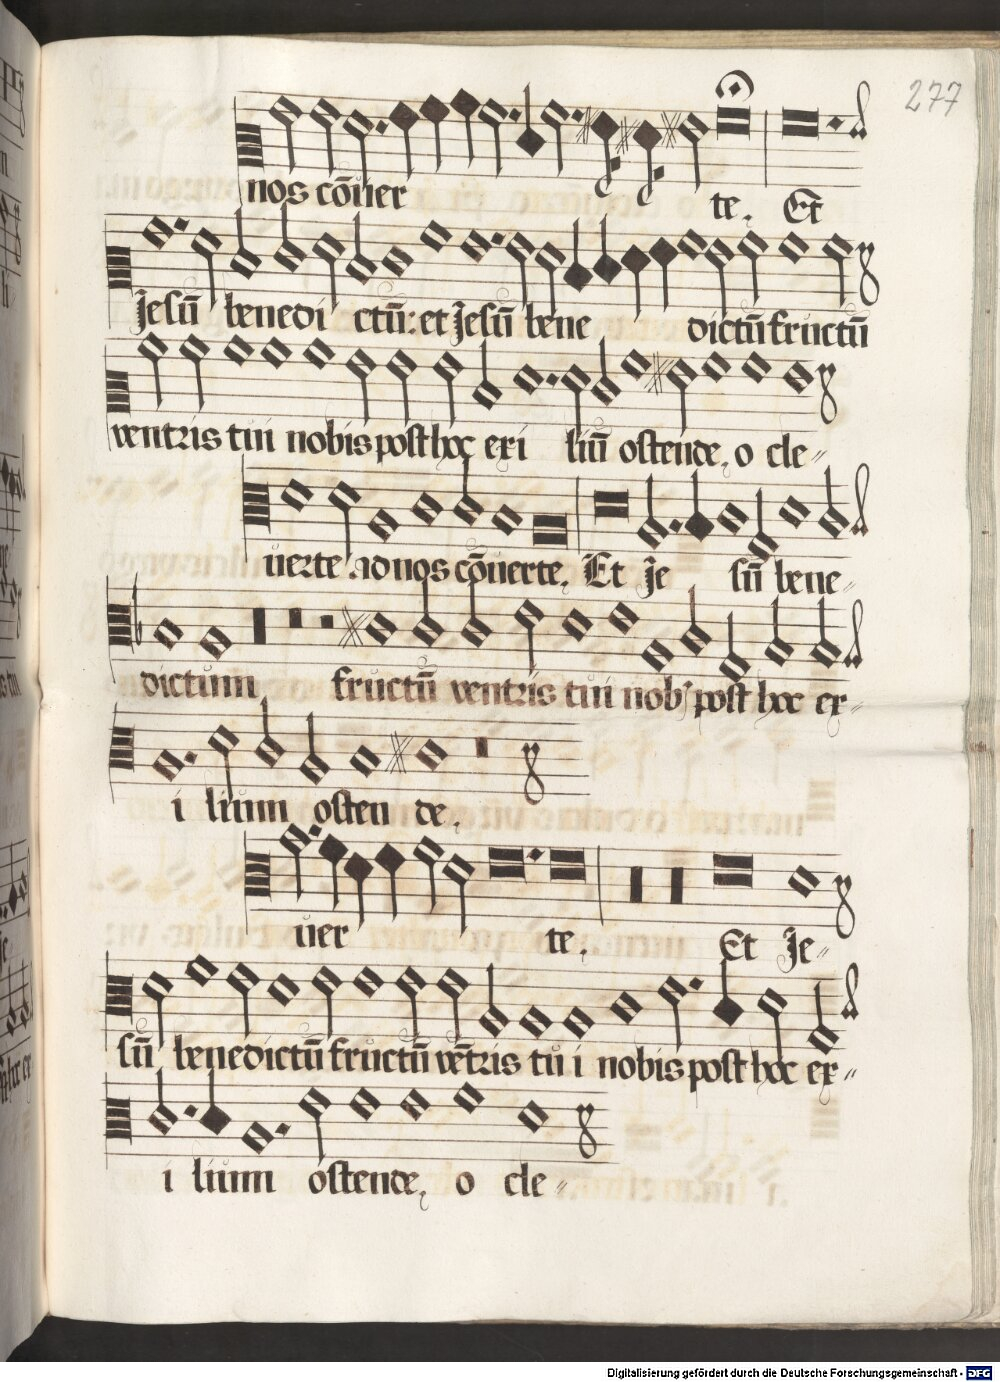 277
nos cōuer te. Et
Jesū benedi ctū: et Jesū bene dictū fructū
ventris tui nobis post hoc exi liū ostende, o cle〃
uerte ad nos cōuerte. Et Je sū bene〃
dictum fructū ventris tui nob' post hoc ex〃
i lium osten de.
uer te. Et Je〃
sū benedictū fructū vētris tu i nobis post hoc ex〃
i lium ostende, o cle〃
Digitalisierung gefördert durch die Deutsche Forschungsgemeinschaft - DFG